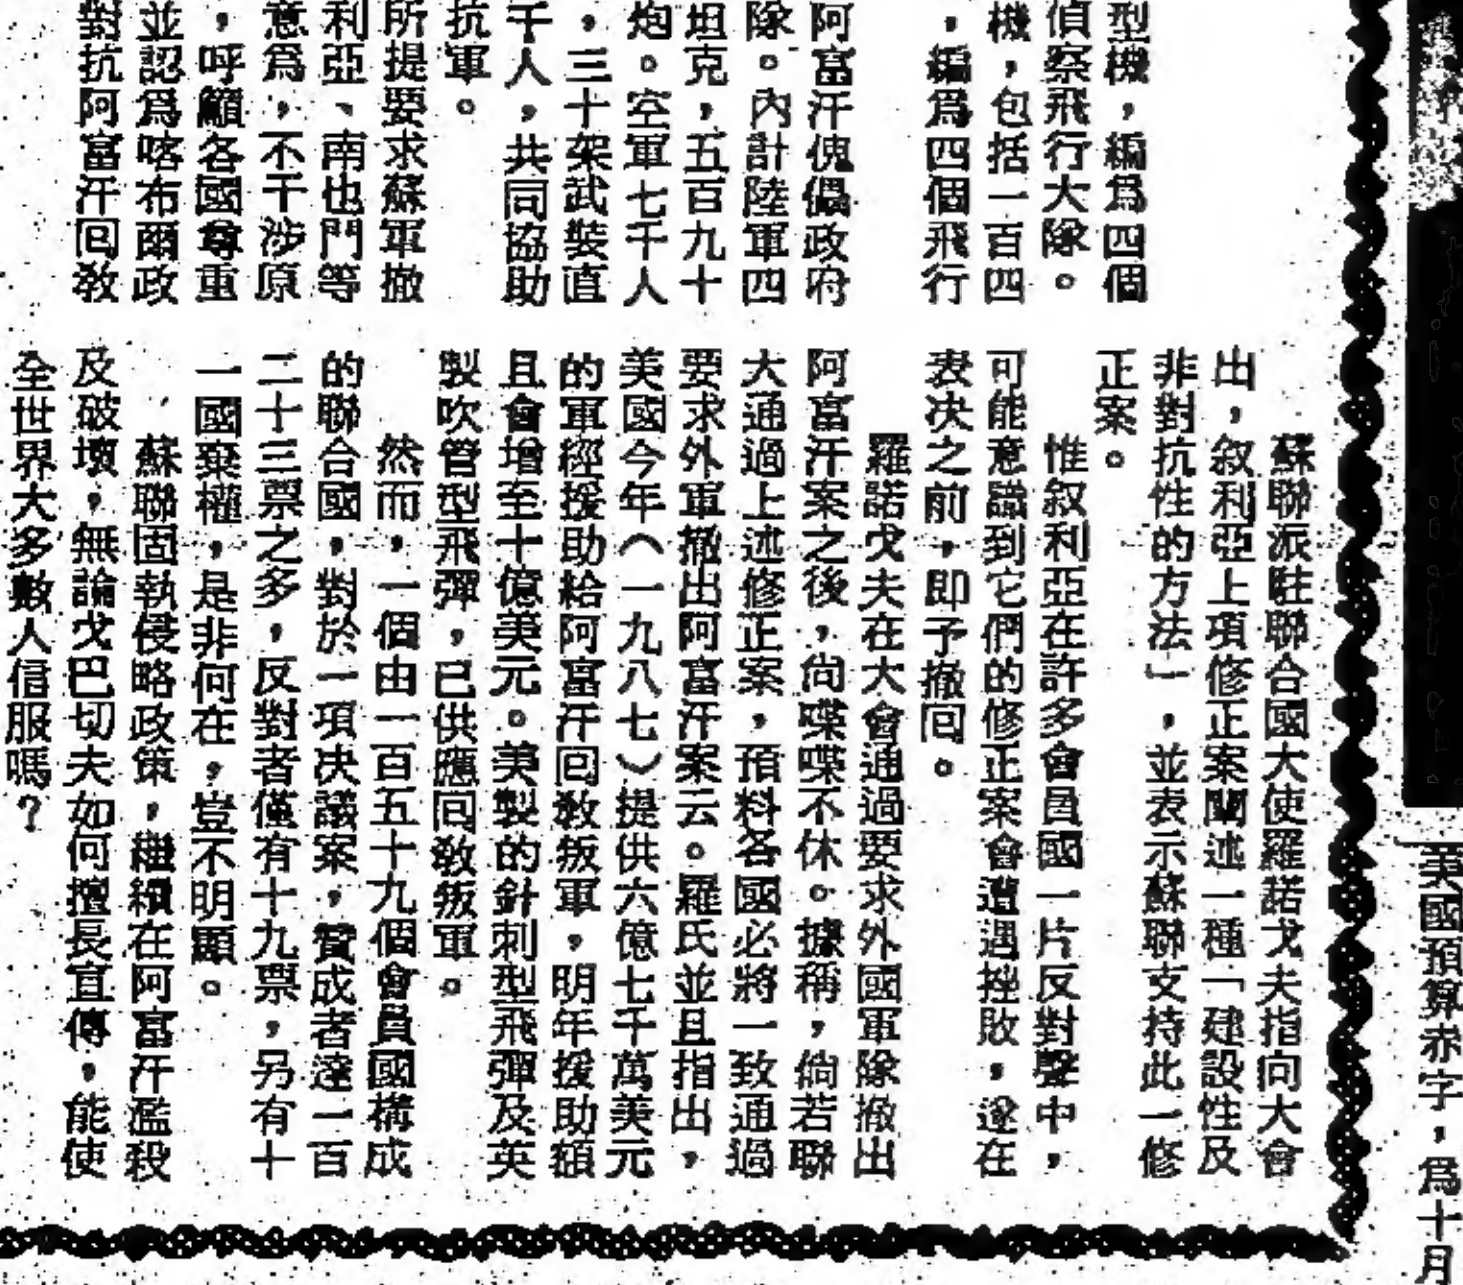 型機，編爲四個
偵察飛行大隊。
機，包括一百四
，編爲四個飛行
阿富汗傀儡政府
隊。內計陸軍四
坦克，五百九十
炮。空軍七千人
，三十架武裝直
千人，共同協助
抗軍。
所提要求蘇軍撤
利亞、南也門等
意爲，不干涉原
，呼籲各國尊重
並認爲喀布爾政
對抗阿富汗回敎
蘇聯派駐聯合國大使羅諾戈夫指向大會
出，叙利亞上項修正案闡述一種「建設性及
非對抗性的方法」，並表示蘇聯支持此一修
正案。
惟叙利亞在許多會員國一片反對聲中，
可能意識到它們的修正案會遭遇挫敗，遂在
表决之前，即予撤回。
羅諾戈夫在大會通過要求外國軍隊撤出
阿富汗案之後，尙喋喋不休。據稱，倘若聯
大通過上述修正案，預料各國必將一致通過
要求外軍撤出阿富汗案云。羅氏並且指出，
美國今年（一九八七）提供六億七千萬美元
的軍經援助給阿富汗回敎叛軍，明年援助額
且會增至十億美元。美製的針刺型飛彈及英
製吹管型飛彈，已供應回敎叛軍。
然而，一個由一百五十九個會員國構成
的聯合國，對於一項決議案，贊成者達一百
二十三票之多，反對者僅有十九票，另有十
一國棄權，是非何在，豈不明顯。
蘇聯固執侵略政策，繼續在阿富汗濫殺
及破壞，無論戈巴切夫如何擅長宣傳，能使
全世界大多數人信服嗎？
美國預算赤字，爲十月